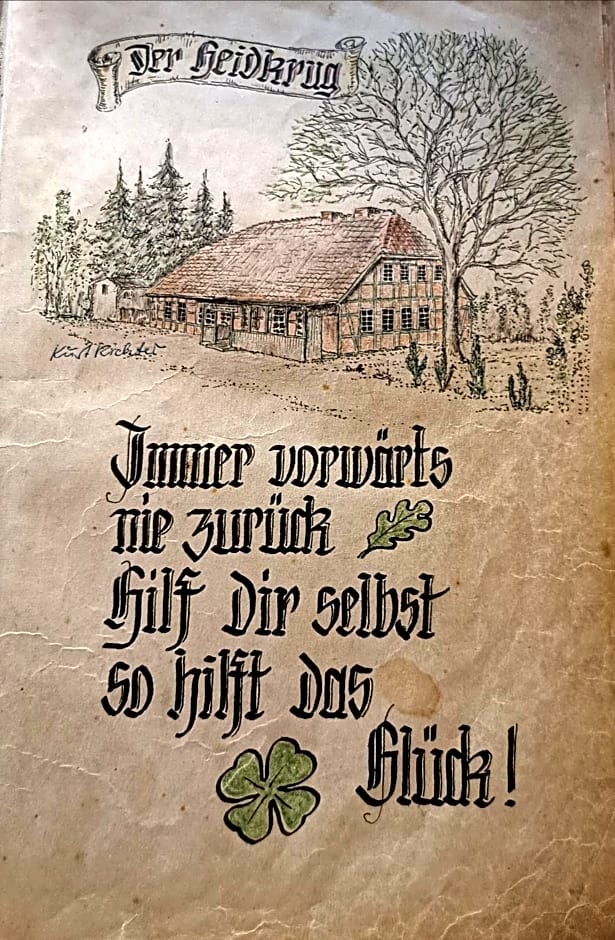 Der Heidkrug
Kurt Richter
Immer vorwärts
nie zurück
Hilf dir selbst
so hilft das
Glück!